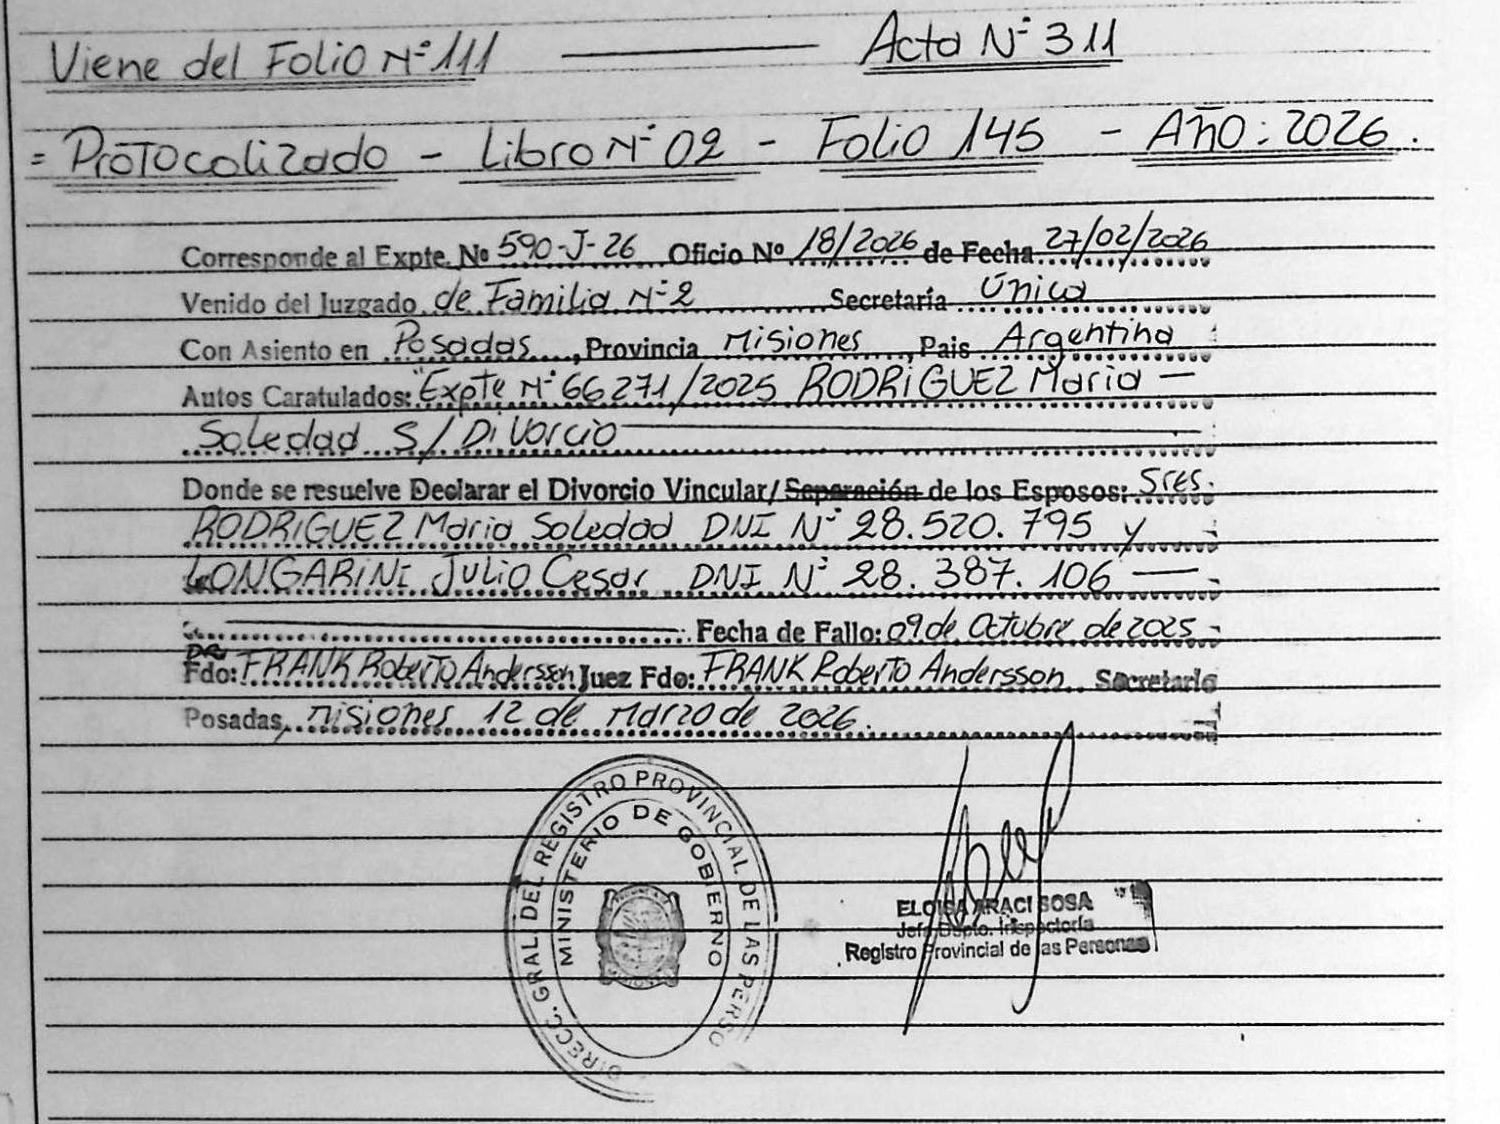 Viene del Folio N° 111 ——— Acta N° 311
= Protocolizado - Libro N° 02 - Folio 145 - Año: 2026.
Corresponde al Expte. Nº 590-J-26 Oficio Nº 18/2026 de Fecha 27/02/2026
Venido del Juzgado de Familia N° 2 Secretaría Única
Con Asiento en Posadas, Provincia Misiones, Pais Argentina
Autos Caratulados: "Expte N° 66271/2025 RODRIGUEZ Maria —
Soledad S/Divorcio
Donde se resuelve Declarar el Divorcio Vincular/ Separación de los Esposos: Sres.
RODRIGUEZ Maria Soledad DNI N° 28.520.795 y
LONGARINI Julio Cesar DNI N° 28.387.106 —
Fecha de Fallo: 09 de Octubre de 2025
Dr
Fdo: FRANK Roberto Anderssen Juez Fdo: FRANK Roberto Andersson Secretario
Posadas, Misiones 12 de Marzo de 2026.
DIRECC. GRAL. DEL REGISTRO PROVINCIAL DE LAS PERSO
MINISTERIO DE GOBIERNO
ELOISA ARACI SOSA
Jefa Dpto. Inspectoría
Registro Provincial de las Personas